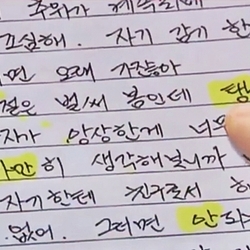 추위가 계속되네
조심해. 자기 감기 한
면 오래 가잖아
절은 벌써 봄인데
자가 앙상한게 너무
가만히 생각해 보니까
자기한테 친구로서
없어. 그러면 안